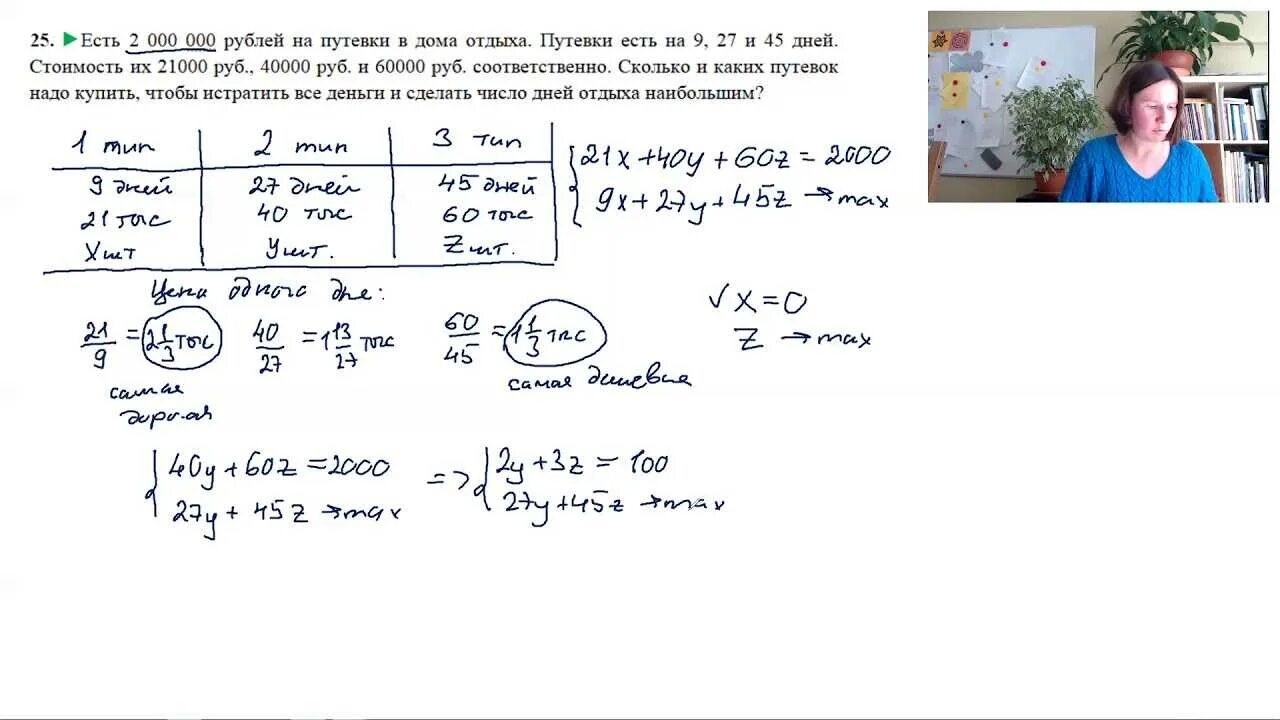 25. ►Есть 2 000 000 рублей на путевки в дома отдыха. Путевки есть на 9, 27 и 45 дней.
Стоимость их 21000 руб., 40000 руб. и 60000 руб. соответственно. Сколько и каких путевок
надо купить, чтобы истратить все деньги и сделать число дней отдыха наибольшим?
1 тип 2 тип 3 тип
9 дней 27 дней 45 дней
21 тыс 40 тыс 60 тыс
X шт У шт. Z шт.
21x + 40y + 60z = 2000
9x + 27y + 45z → max
Цена одного дня:
21/9 = 2 1/3 тыс 40/27 = 1 13/27 тыс 60/45 = 1 1/3 тыс
самая дорогая
самая дешевая
√ X = 0
Z → max
40y + 60z = 2000 => 2y + 3z = 100
27y + 45z → max 27y + 45z → max